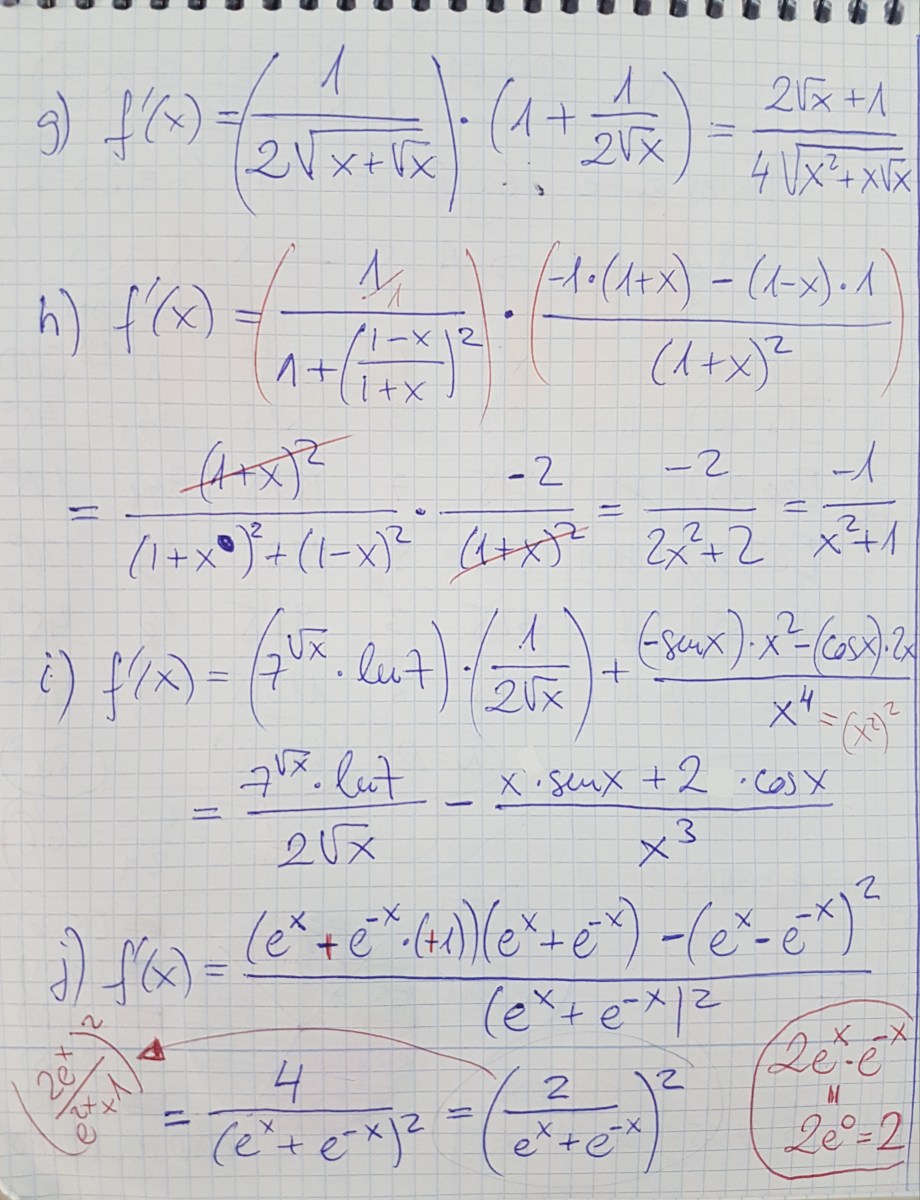 g) f'(x) = (1/(2√(x+√x))) · (1 + 1/(2√x)) = (2√x+1)/(4√(x²+x√x))
h) f'(x) = ((1/1)/(1+((1-x)/(1+x))²)) · ((-1·(1+x) - (1-x)·1)/((1+x)²))
= ((1+x)²)/((1+x)²+(1-x)²) · (-2)/((1+x)²) = (-2)/(2x²+2) = (-1)/(x²+1)
i) f'(x) = (7^(√x) · ln7) · (1/(2√x)) + ((-sinx)·x²-(cosx)·2x)/(x⁴ = (x²)²)
= (7^(√x) · ln7)/(2√x) - (x·sinx + 2 ·cosx)/(x³)
j) f'(x) = ((e^x + e^(-x)·(+1))(e^x+e^(-x)) - (e^x-e^(-x))²)/((e^x+e^(-x))²)
= 4/((e^x+e^(-x))²) = (2/(e^x+e^(-x)))²
2e^x·e^(-x)
=
2e⁰=2